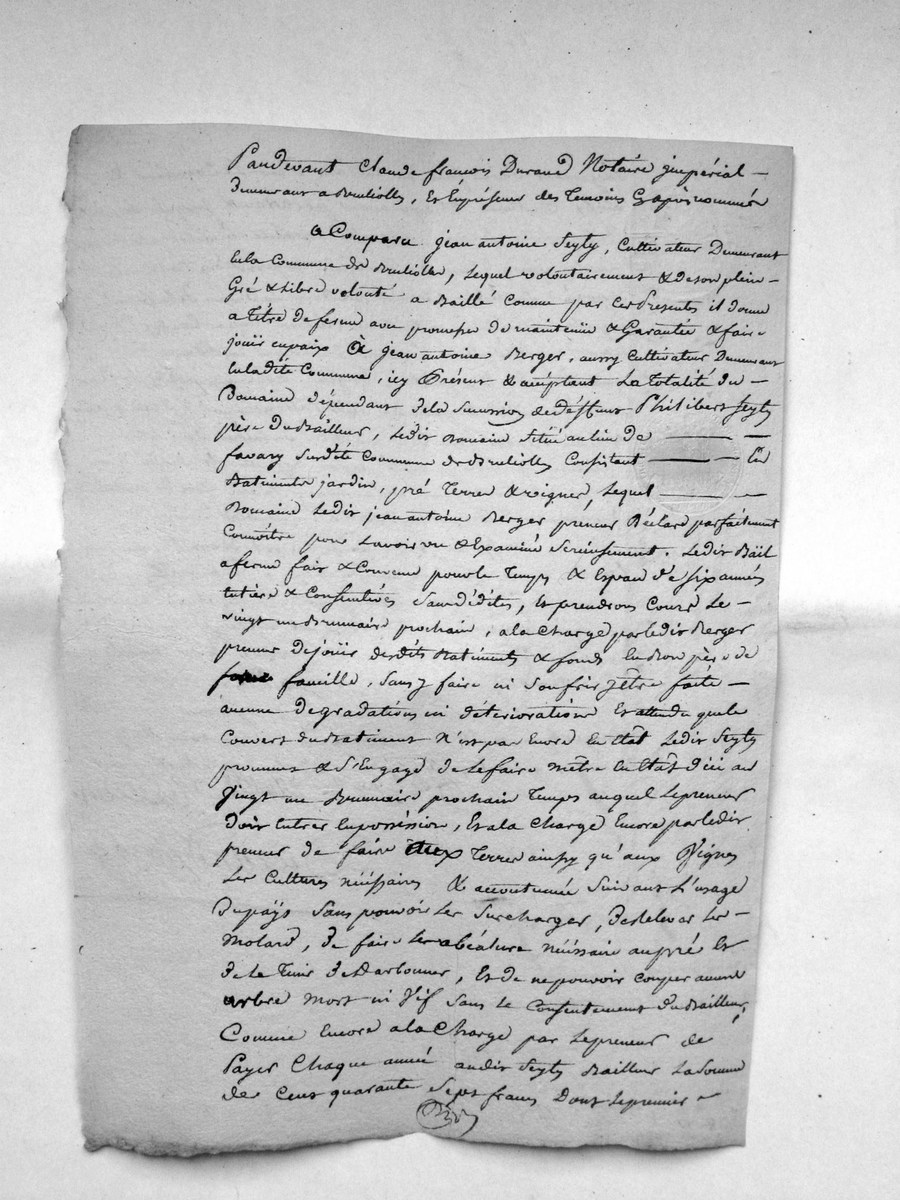 Pardevant Claude françois Durand Notaire jmpérial —
Demeurant a Brulioles, Et En présence des Temoins Cy après nommés
a Comparu jean antoine Seyty, Cultivateur Demeurant
En la Commune de Brulioles, Lequel volontairement & de son plein
Gré & Libre volonté a Baillé Comme par Ces présentes il donne
a Titre de ferme avec promesse de maintenir & Garantir & faire
jouir en paix a jean antoine Berger, aussy Cultivateur Demeurant
En ladite Commune, icy présent & acceptant La Totalité du —
Domaine dépendant de la Succession de deffunt Philibert Seyty
père du Bailleur, Ledit Domaine Situé au lieu de —
favary Susdite Commune de Brulioles Consistant — En
Batiments jardin, pré Terres & vignes, Lequel —
Domaine Ledit jean antoine Berger preneur Déclare parfaitement
Connoitre pour Lavoir vu & Examiné Serieusement. Ledit Bail
a ferme fait & Convenu pour le Temps & Espace de six années
Entière & Consecutives Sans dédites, Et prendront Cours Le —
vingt un Brumaire prochain, a la Charge par ledit Berger
preneur de jouir desdits Batiments & fonds En Bon père de
famille, Sans y faire ni Soufrir jêtre faite —
aucune degradations ni déteriorations Et attendu que le
Couvert du Batiment N'est pas Encore En Etat Ledit Seyty
promet & S'Engage de Le faire mêtre En Etat d'ici au
Vingt un Brumaire prochain Temps auquel Le preneur
doit Entrer En possession, Et a la Charge Encore par ledit
preneur de faire aux Terres ainsy qu'aux Vignes
Les Cultures nécessaires & accoutumée Suivant L'usage
Du pays Sans pouvoir Les Surcharger, De relever Les —
Molard, de faire Les abéature nécéssaire au pré Et
de Le Tenir, Et de ne pouvoir couper aucune
arbre mort ni Vif Sans le Consentement du Bailleur,
Comme Encore a la Charge par Le preneur de
Payer Chaque année audit Seyty Bailleur La Somme
de Cent quarante Sept francs Dont Le premier